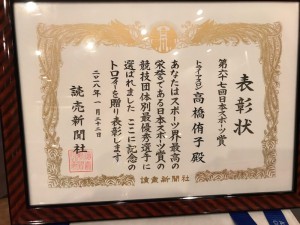 表彰状
第六七回日本スポーツ賞
トライアスロン
高橋侑子殿
あなたはスポーツ界最高の
栄誉である日本スポーツ賞の
競技団体別最優秀選手に
選ばれました ここに記念の
トロフィーを贈り表彰します
二〇一八年一月二十三日
読売新聞社
読売新聞社